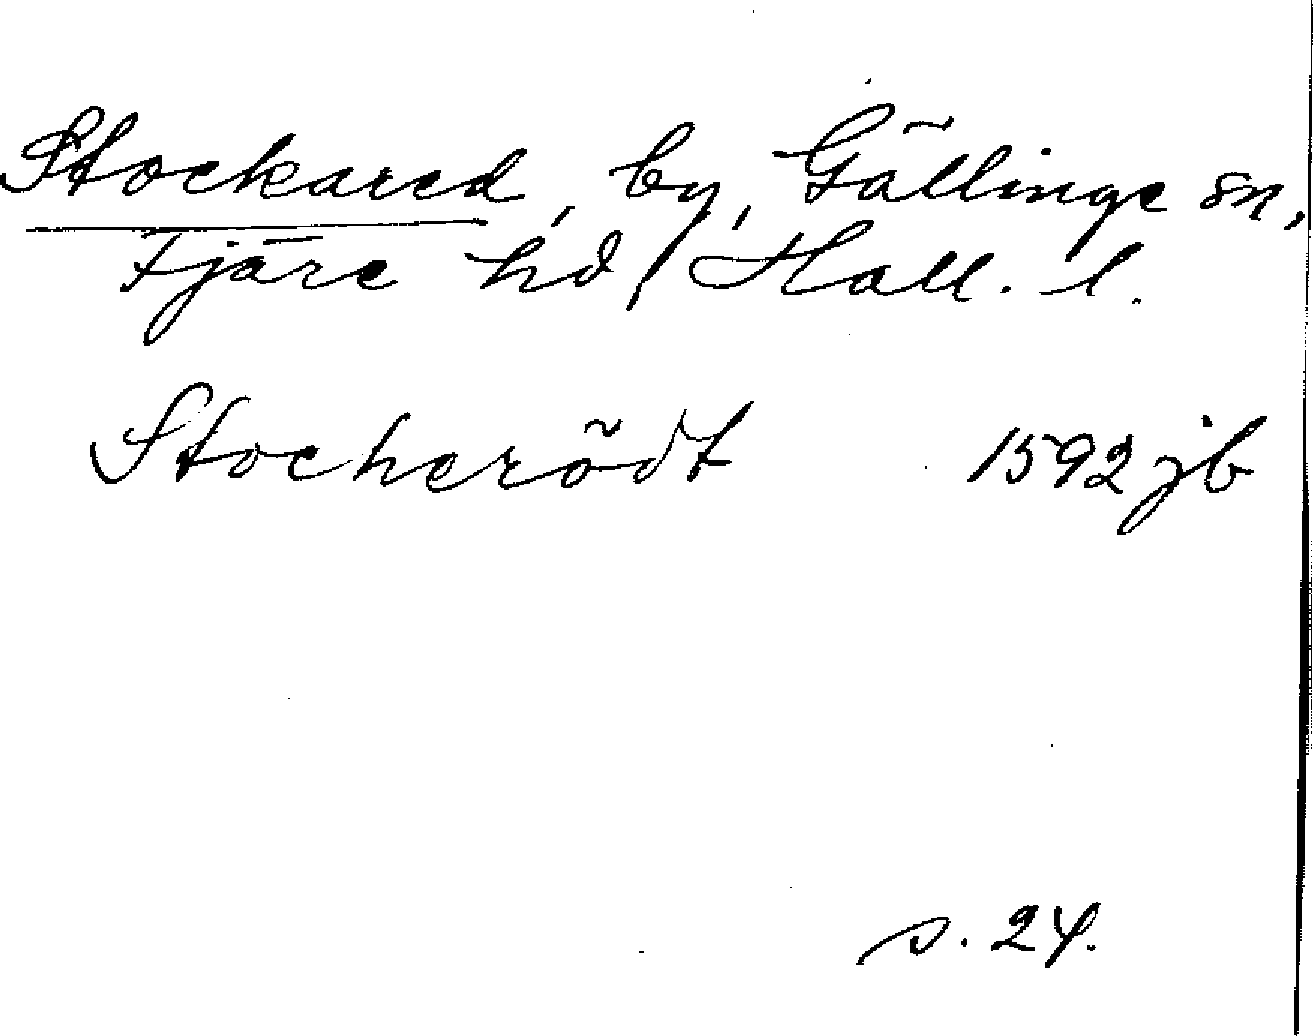 Stockared, by, Gällinge sn,
Fjäre hd, Hall. l.
Stocherödt 1592 jb
s. 24.